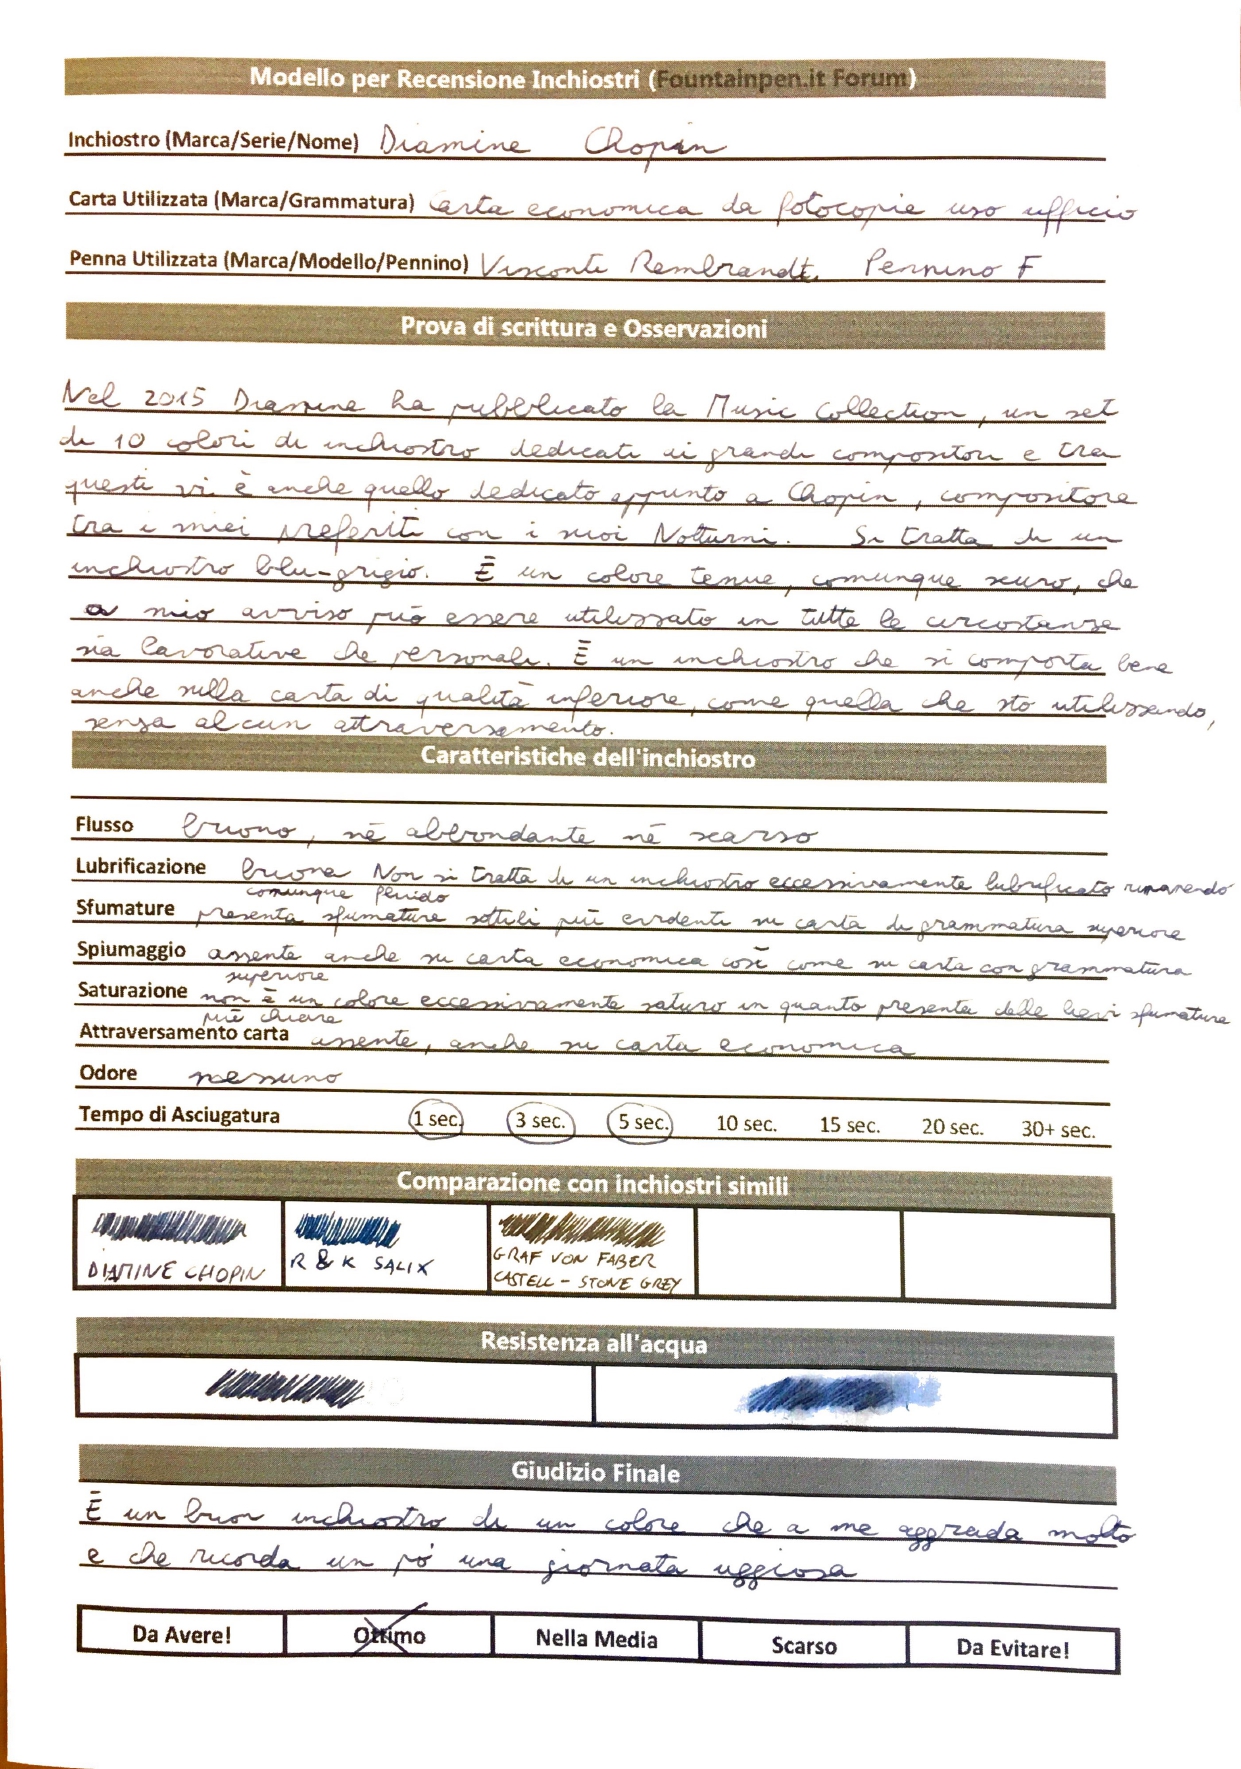 Modello per Recensione Inchiostri (Fountainpen.it Forum)
Inchiostro (Marca/Serie/Nome) Diamine Chopin
Carta Utilizzata (Marca/Grammatura) Carta economica da fotocopie uso ufficio
Penna Utilizzata (Marca/Modello/Pennino) Visconti Rembrandt. Pennino F
Prova di scrittura e Osservazioni
Nel 2015 Diamine ha pubblicato la Music Collection, un set
di 10 colori di inchiostro dedicati ai grandi compositori e tra
questi vi è anche quello dedicato appunto a Chopin, compositore
tra i miei preferiti con i suoi Notturni. Si tratta di un
inchiostro blu-grigio. È un colore tenue, comunque scuro, che
a mio avviso può essere utilizzato in tutte le circostanze
sia lavorative che personali. È un inchiostro che si comporta bene
anche sulla carta di qualità inferiore, come quella che sto utilizzando,
senza alcun attraversamento.
Caratteristiche dell'inchiostro
Flusso buono, nè abbondante nè scarso
Lubrificazione buona Non si tratta di un inchiostro eccessivamente lubrificato rimanendo
comunque fluido
Sfumature presenta sfumature sottili più evidenti su carta di grammatura superiore
Spiumaggio assente anche su carta economica così come su carta con grammatura
superiore
Saturazione non è un colore eccessivamente saturo in quanto presenta delle lievi sfumature
più chiare
Attraversamento carta assente, anche su carta economica
Odore nessuno
Tempo di Asciugatura 1 sec. 3 sec. 5 sec. 10 sec. 15 sec. 20 sec. 30+ sec.
Comparazione con inchiostri simili
DIAMINE CHOPIN
R & K SALIX
GRAF VON FABER
CASTELL - STONE GREY
Resistenza all'acqua
Giudizio Finale
È un buon inchiostro di un colore che a me aggrada molto
e che ricorda un pó una giornata uggiosa
Da Avere! Ottimo Nella Media Scarso Da Evitare!